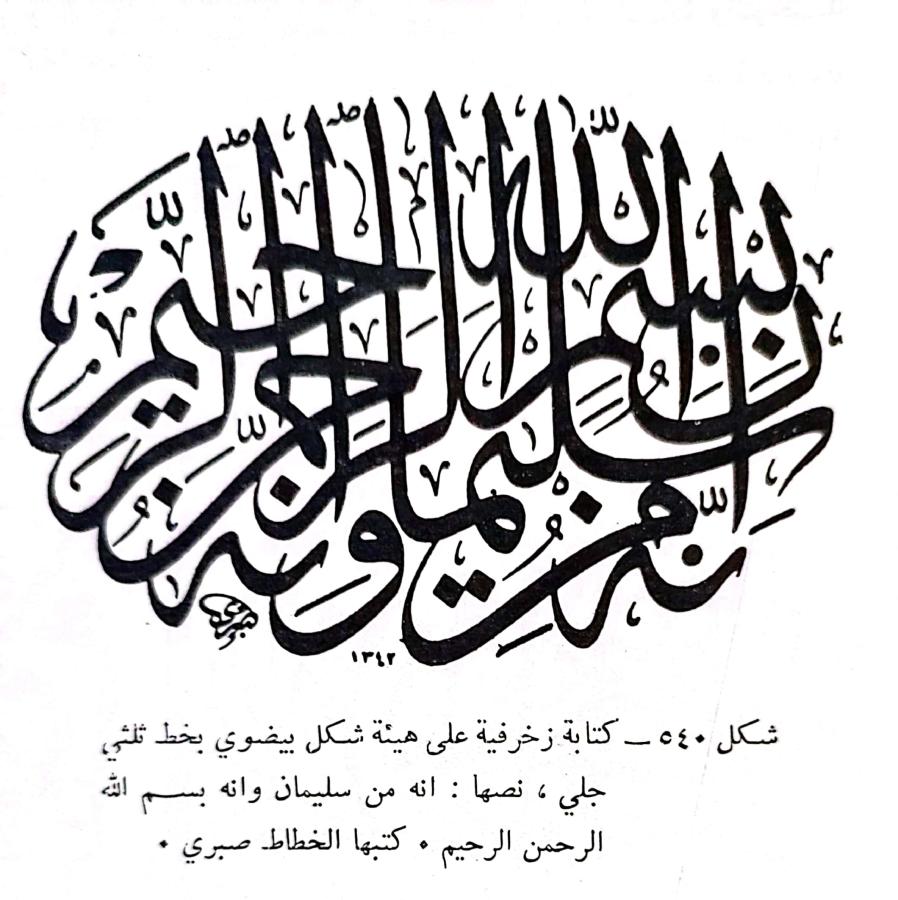 إنه من سليمان وإنه بسم الله الرحمن الرحيم
صبري
١٣٤٢
شكل ٥٤٠ ــ كتابة زخرفية على هيئة شكل بيضوي بخط ثلثي
جلي ، نصها : انه من سليمان وانه بســم الله
الرحمن الرحيم ٠ كتبها الخطاط صبري ٠